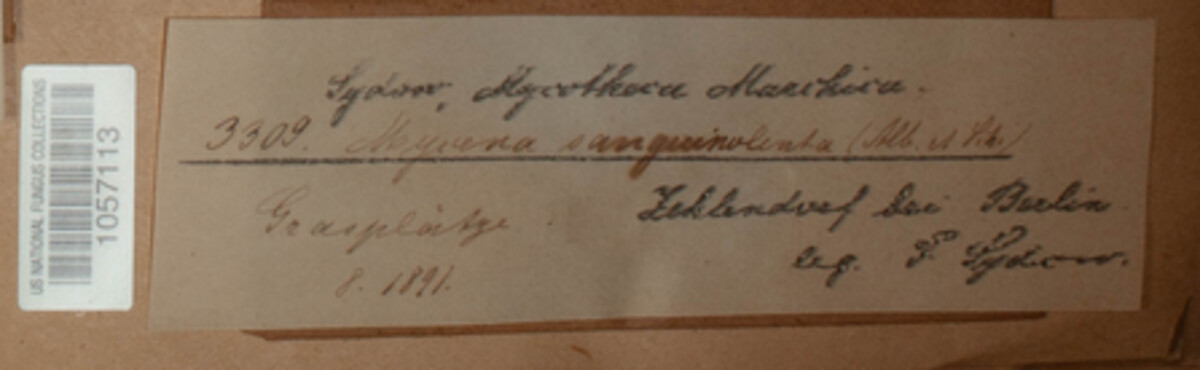 US NATIONAL FUNGUS COLLECTIONS
1057113
Sydow, Mycotheca Marchica.
3309. Mycena sanguinolenta (Alb. et Sch.)
Grasplätze
8. 1891.
Zehlendorf bei Berlin
leg. P. Sydow.